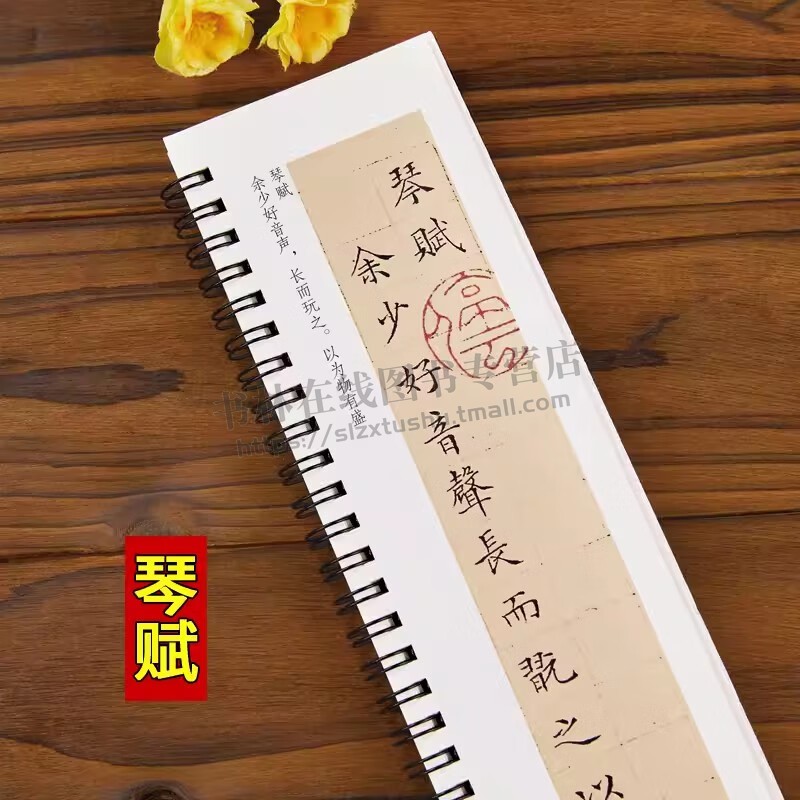 琴赋
余少好音声，长而玩之。以为物有盛
琴賦
余少好音聲長而翫之以
书林在线图书专营店
https://slzxtushu.tmall.com
琴赋